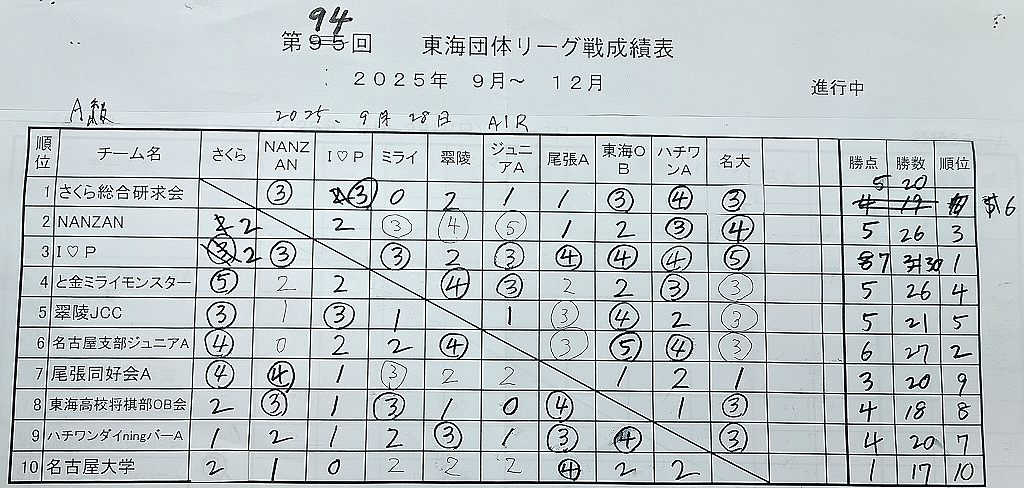 94
第95回 東海団体リーグ戦成績表
2025年 9月～ 12月
進行中
A級 2025.9月28日 AIR
順位 チーム名 さくら NANZAN I♡P ミライ 翠陵 ジュニアA 尾張A 東海OB ハチワンA 名大 勝点 勝数 順位
1 さくら総合研究会 ③ ③ 0 2 1 1 ③ ④ ③ 5 20 6
2 NANZAN 2 2 ③ ④ ⑤ 1 2 ③ ④ 5 26 3
3 I♡P 2 ③ ③ 2 ③ ④ ④ ④ ⑤ 7 30 1
4 と金ミライモンスター ⑤ 2 2 ④ ③ 2 2 ③ ③ 5 26 4
5 翠陵JCC ③ 1 ③ 1 1 ③ ④ 2 ③ 5 21 5
6 名古屋支部ジュニアA ④ 0 2 2 ④ ③ ⑤ ④ ③ 6 27 2
7 尾張同好会A ④ ④ 1 ③ 2 2 1 2 1 3 20 9
8 東海高校将棋部OB会 2 ③ 1 ③ 1 0 ④ 1 ③ 4 18 8
9 ハチワンダイningバーA 1 2 1 2 ③ 1 ③ ④ ③ 4 20 7
10 名古屋大学 2 1 0 2 2 2 ④ 2 2 1 17 10